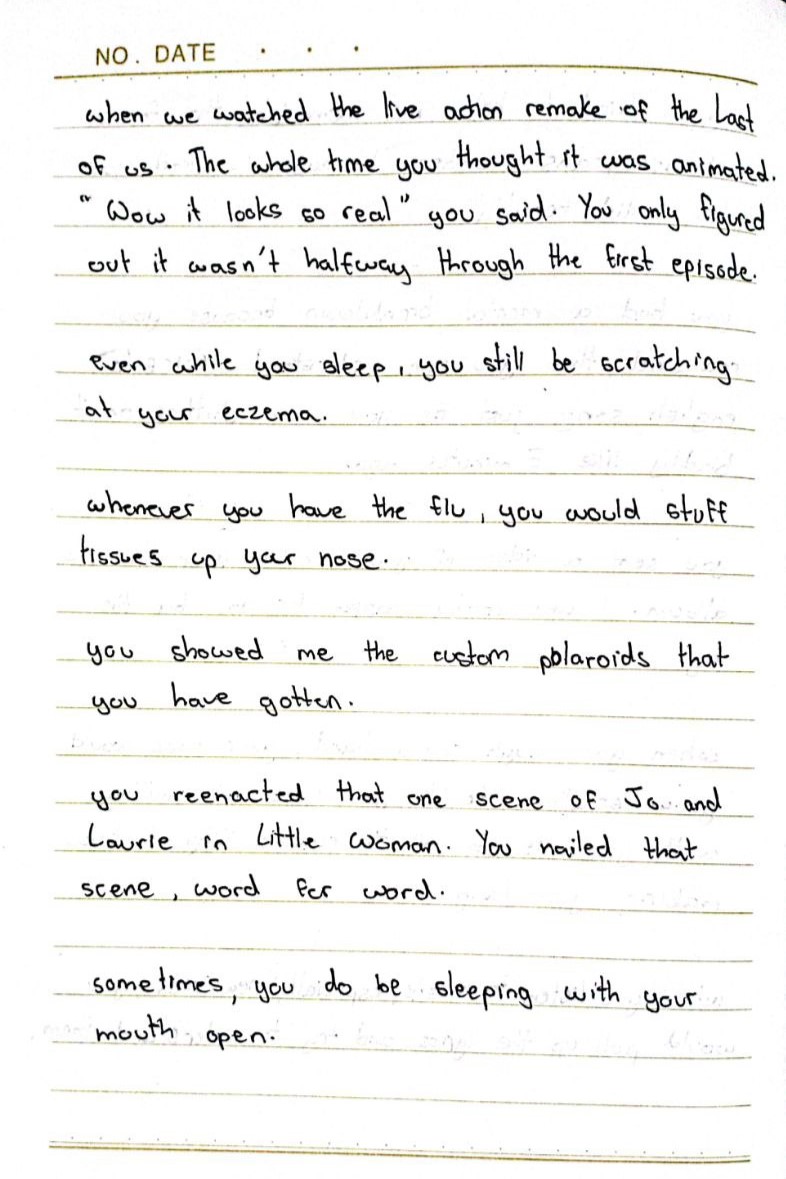 NO. DATE . . .
when we watched the live action remake of the Last
of us. The whole time you thought it was animated.
"Wow it looks so real" you said. You only figured
out it wasn't halfway through the first episode.
even while you sleep, you still be scratching
at your eczema.
whenever you have the flu, you would stuff
tissues up your nose.
you showed me the custom polaroids that
you have gotten.
you reenacted that one scene of Jo and
Laurie in Little Woman. You nailed that
scene, word for word.
sometimes, you do be sleeping with your
mouth open.